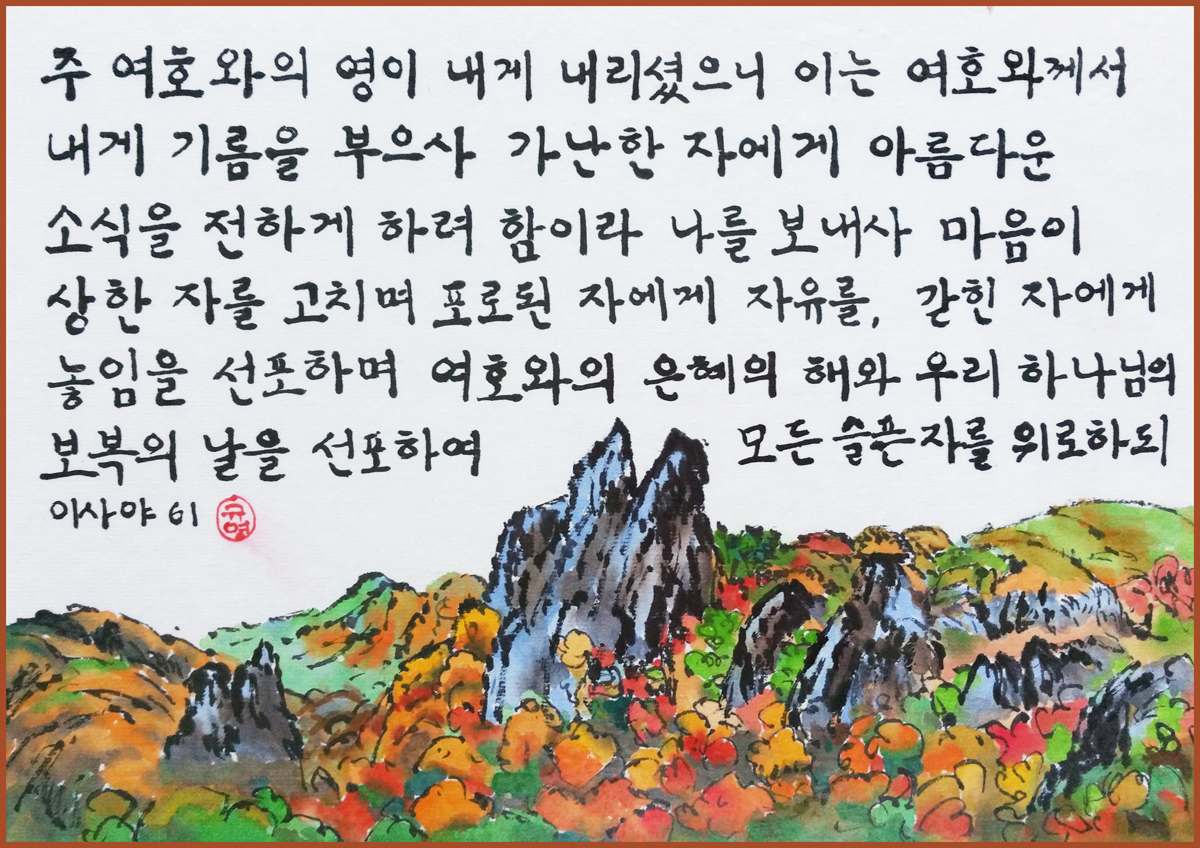 주 여호와의 영이 내게 내리셨으니 이는 여호와께서
내게 기름을 부으사 가난한 자에게 아름다운
소식을 전하게 하려 함이라 나를 보내사 마음이
상한 자를 고치며 포로된 자에게 자유를, 갇힌 자에게
놓임을 선포하며 여호와의 은혜의 해와 우리 하나님의
보복의 날을 선포하여 모든 슬픈 자를 위로하되
이사야 61 규영